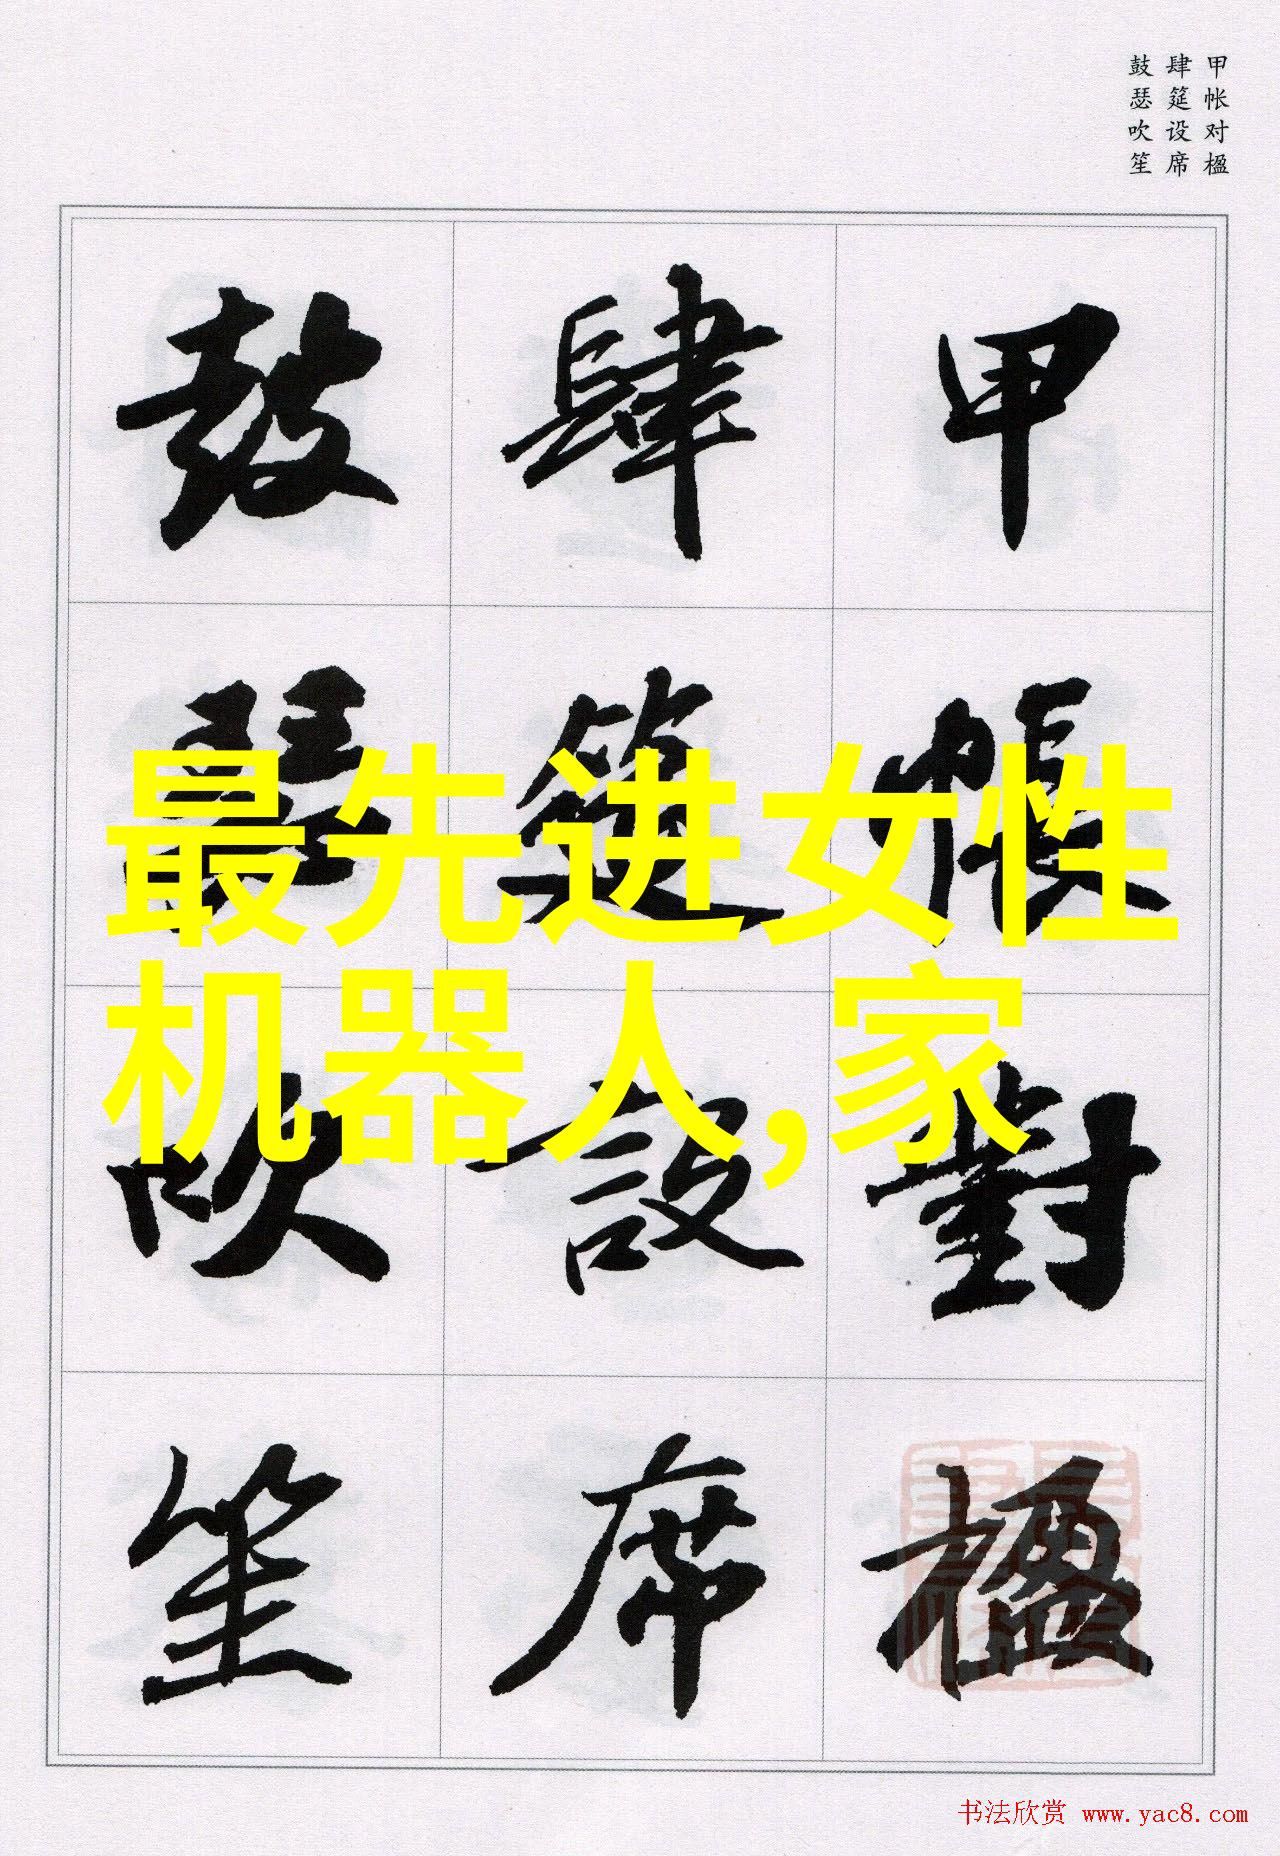 甲帐对楹
肆筵设席
鼓瑟吹笙
甲帳對楹
肆筵設席
鼓瑟吹笙
最先进女性
机器人,家
书法欣赏 www.yac8.com